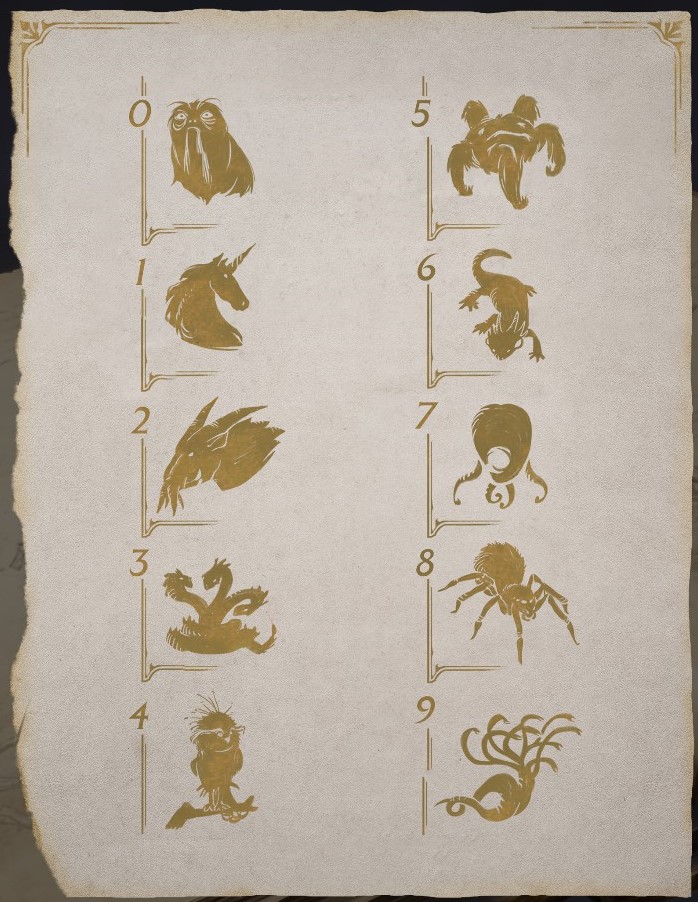 0 5
1 6
2 7
3 8
4 9